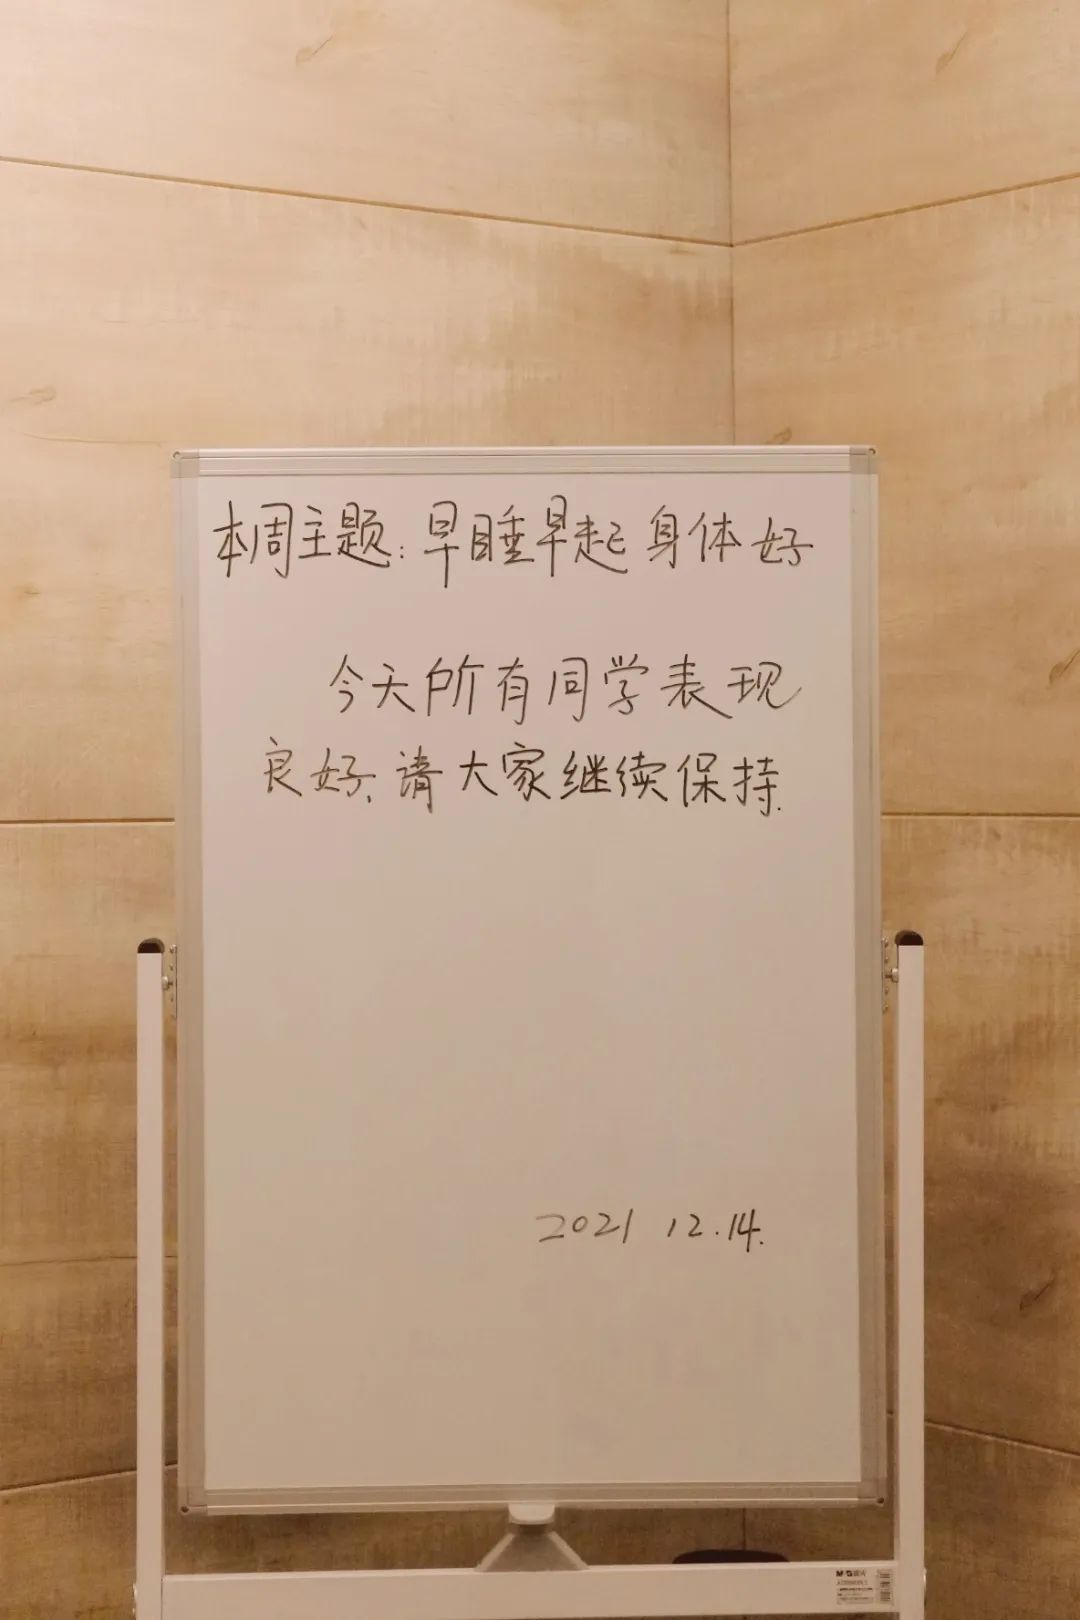 本周主题:早睡早起身体好
今天所有同学表现
良好、请大家继续保持.
2021 12.14.
M&G晨光